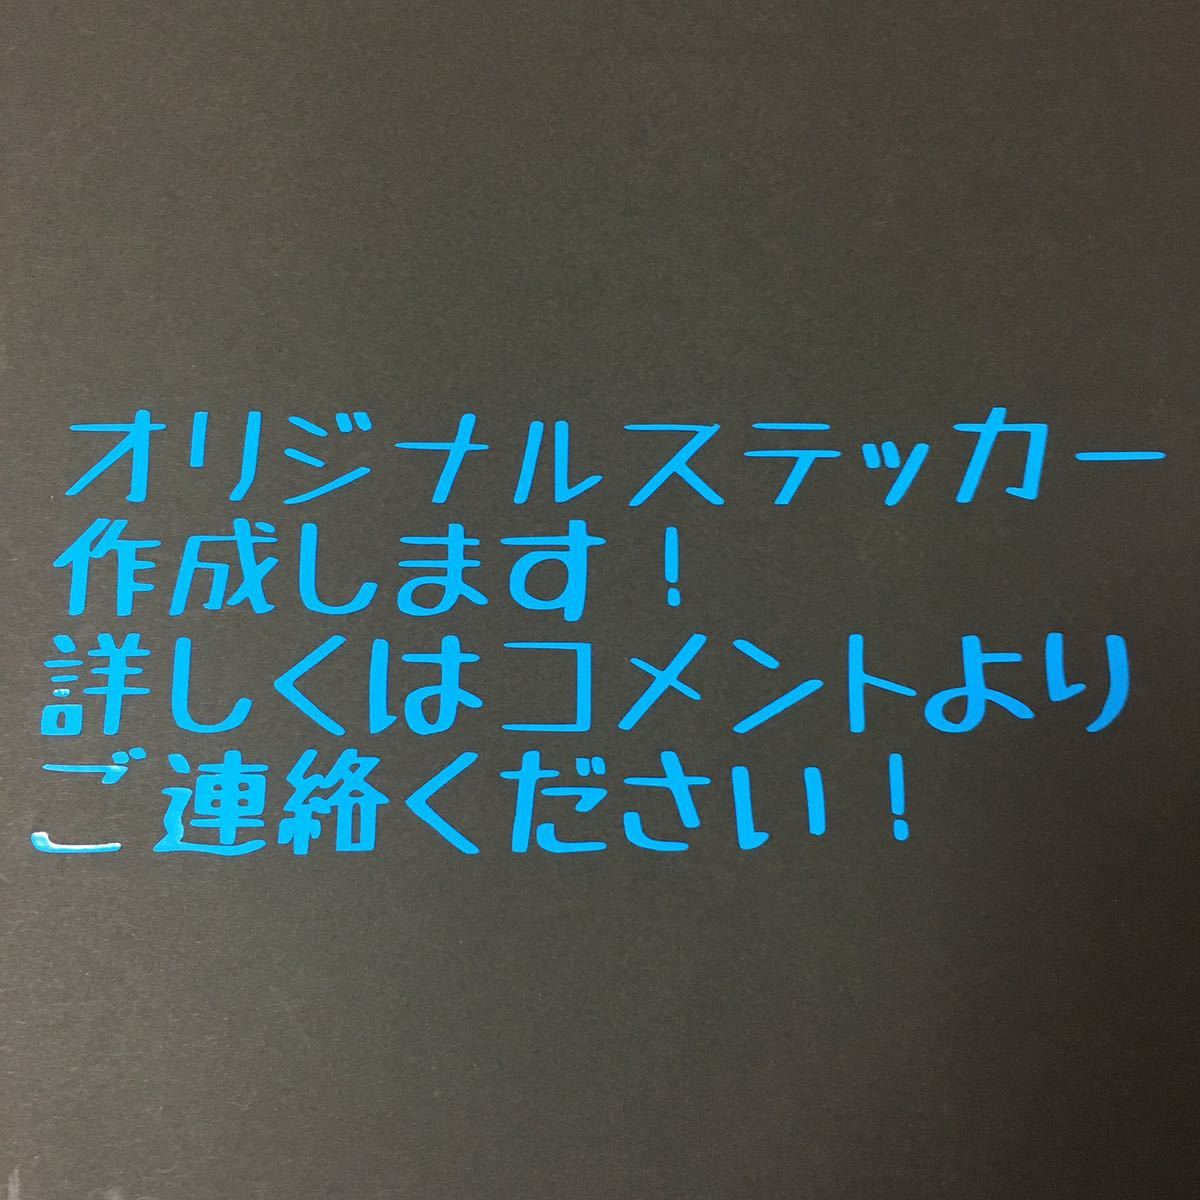 オリジナルステッカー
作成します！
詳しくはコメントより
ご連絡ください！